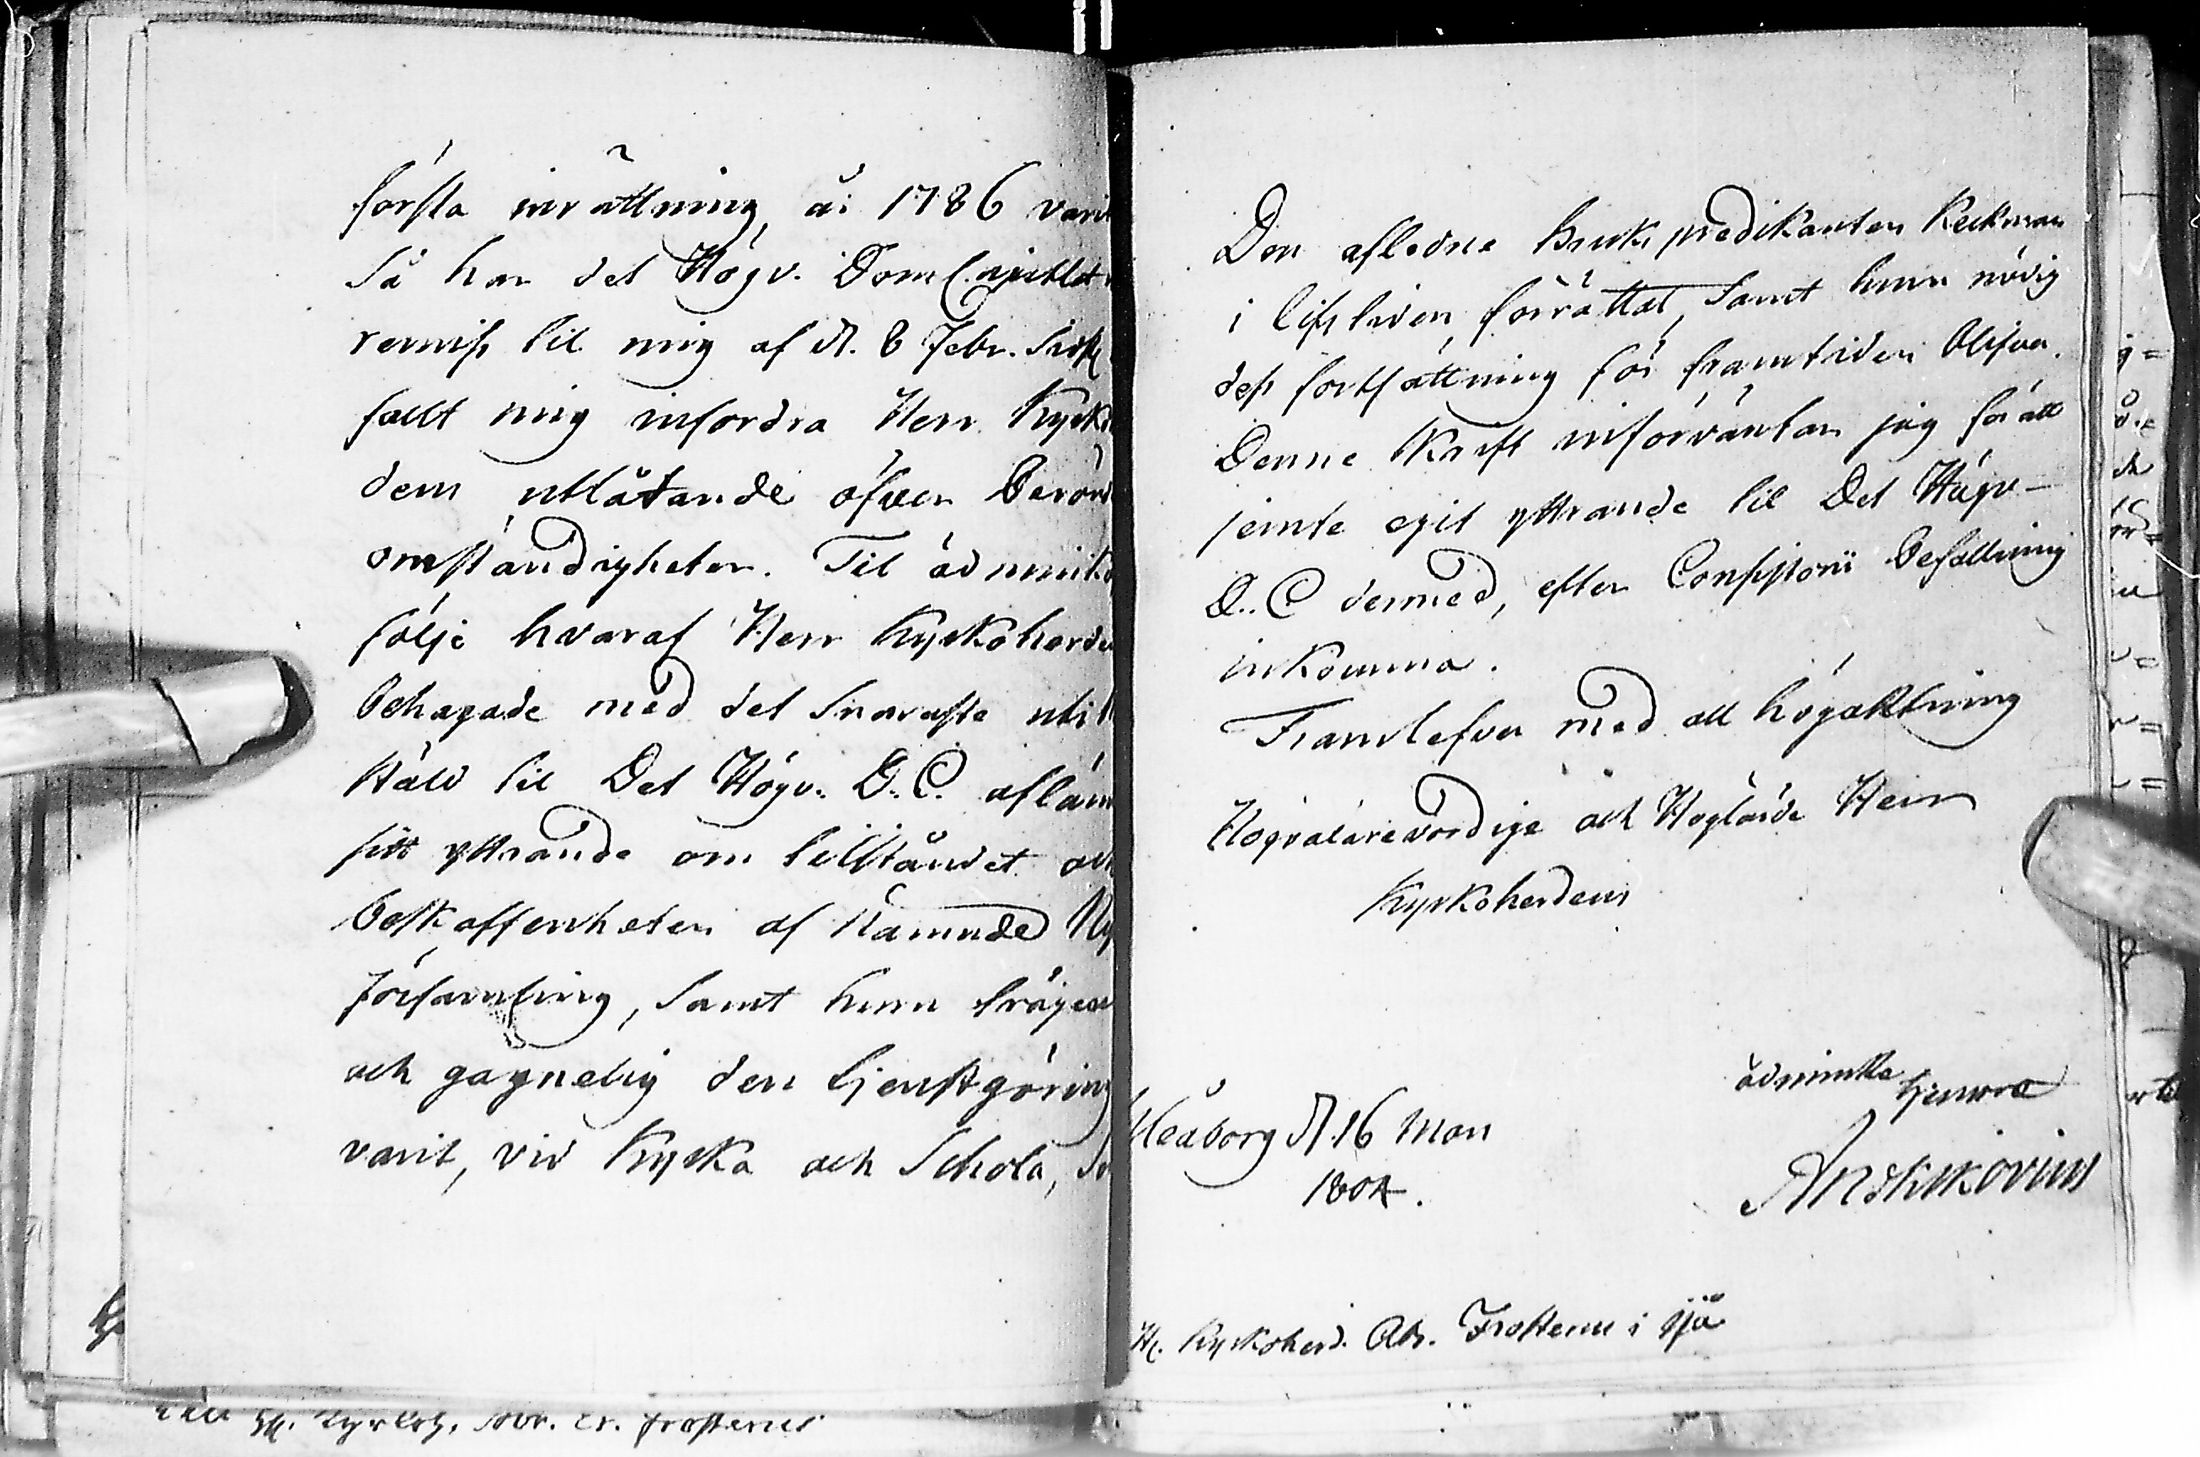 första inrättning, år 1786 varit
Så har det Högv. Dom C. 
remiss til mig af d. 8 Febr. sistl
fallt mig infordra Herr Kyrko
dem utlåtande öfver berörd
omständigheter. Til ödmiuk
följe hvaraf Herr Kyrkoherde
behagade med det snaraste
stäld til Det Högv. D. C. aflämn
sitt yttrande om tillståndet och
beskaffenheten af nämnde Ny
församling, samt huru trägen
och gagnelig den tjenstgöring
varit, vid Kyrka och Schola, so
Den aflidne Bruks predikanten Keckman
i lifstiden förrättat, samt huru nödig
dess fortsättning för framtiden blifver.
Denne skrift införväntar jag för att
jemte egit yttrande til Det Högv-
D. C dermed, efter Consistorii befallning
inkomma.
Framlefver med all högaktning
Högvälärevördige och Höglärde Herr
Kyrkoherdens
ödmiukste tjenare
Uleåborg d. 16 Mars
1804.
H. Kyrkoherd. Abr. Frosterus i Ijå
H. Kyrkoh. Abr. Er. Frosterus